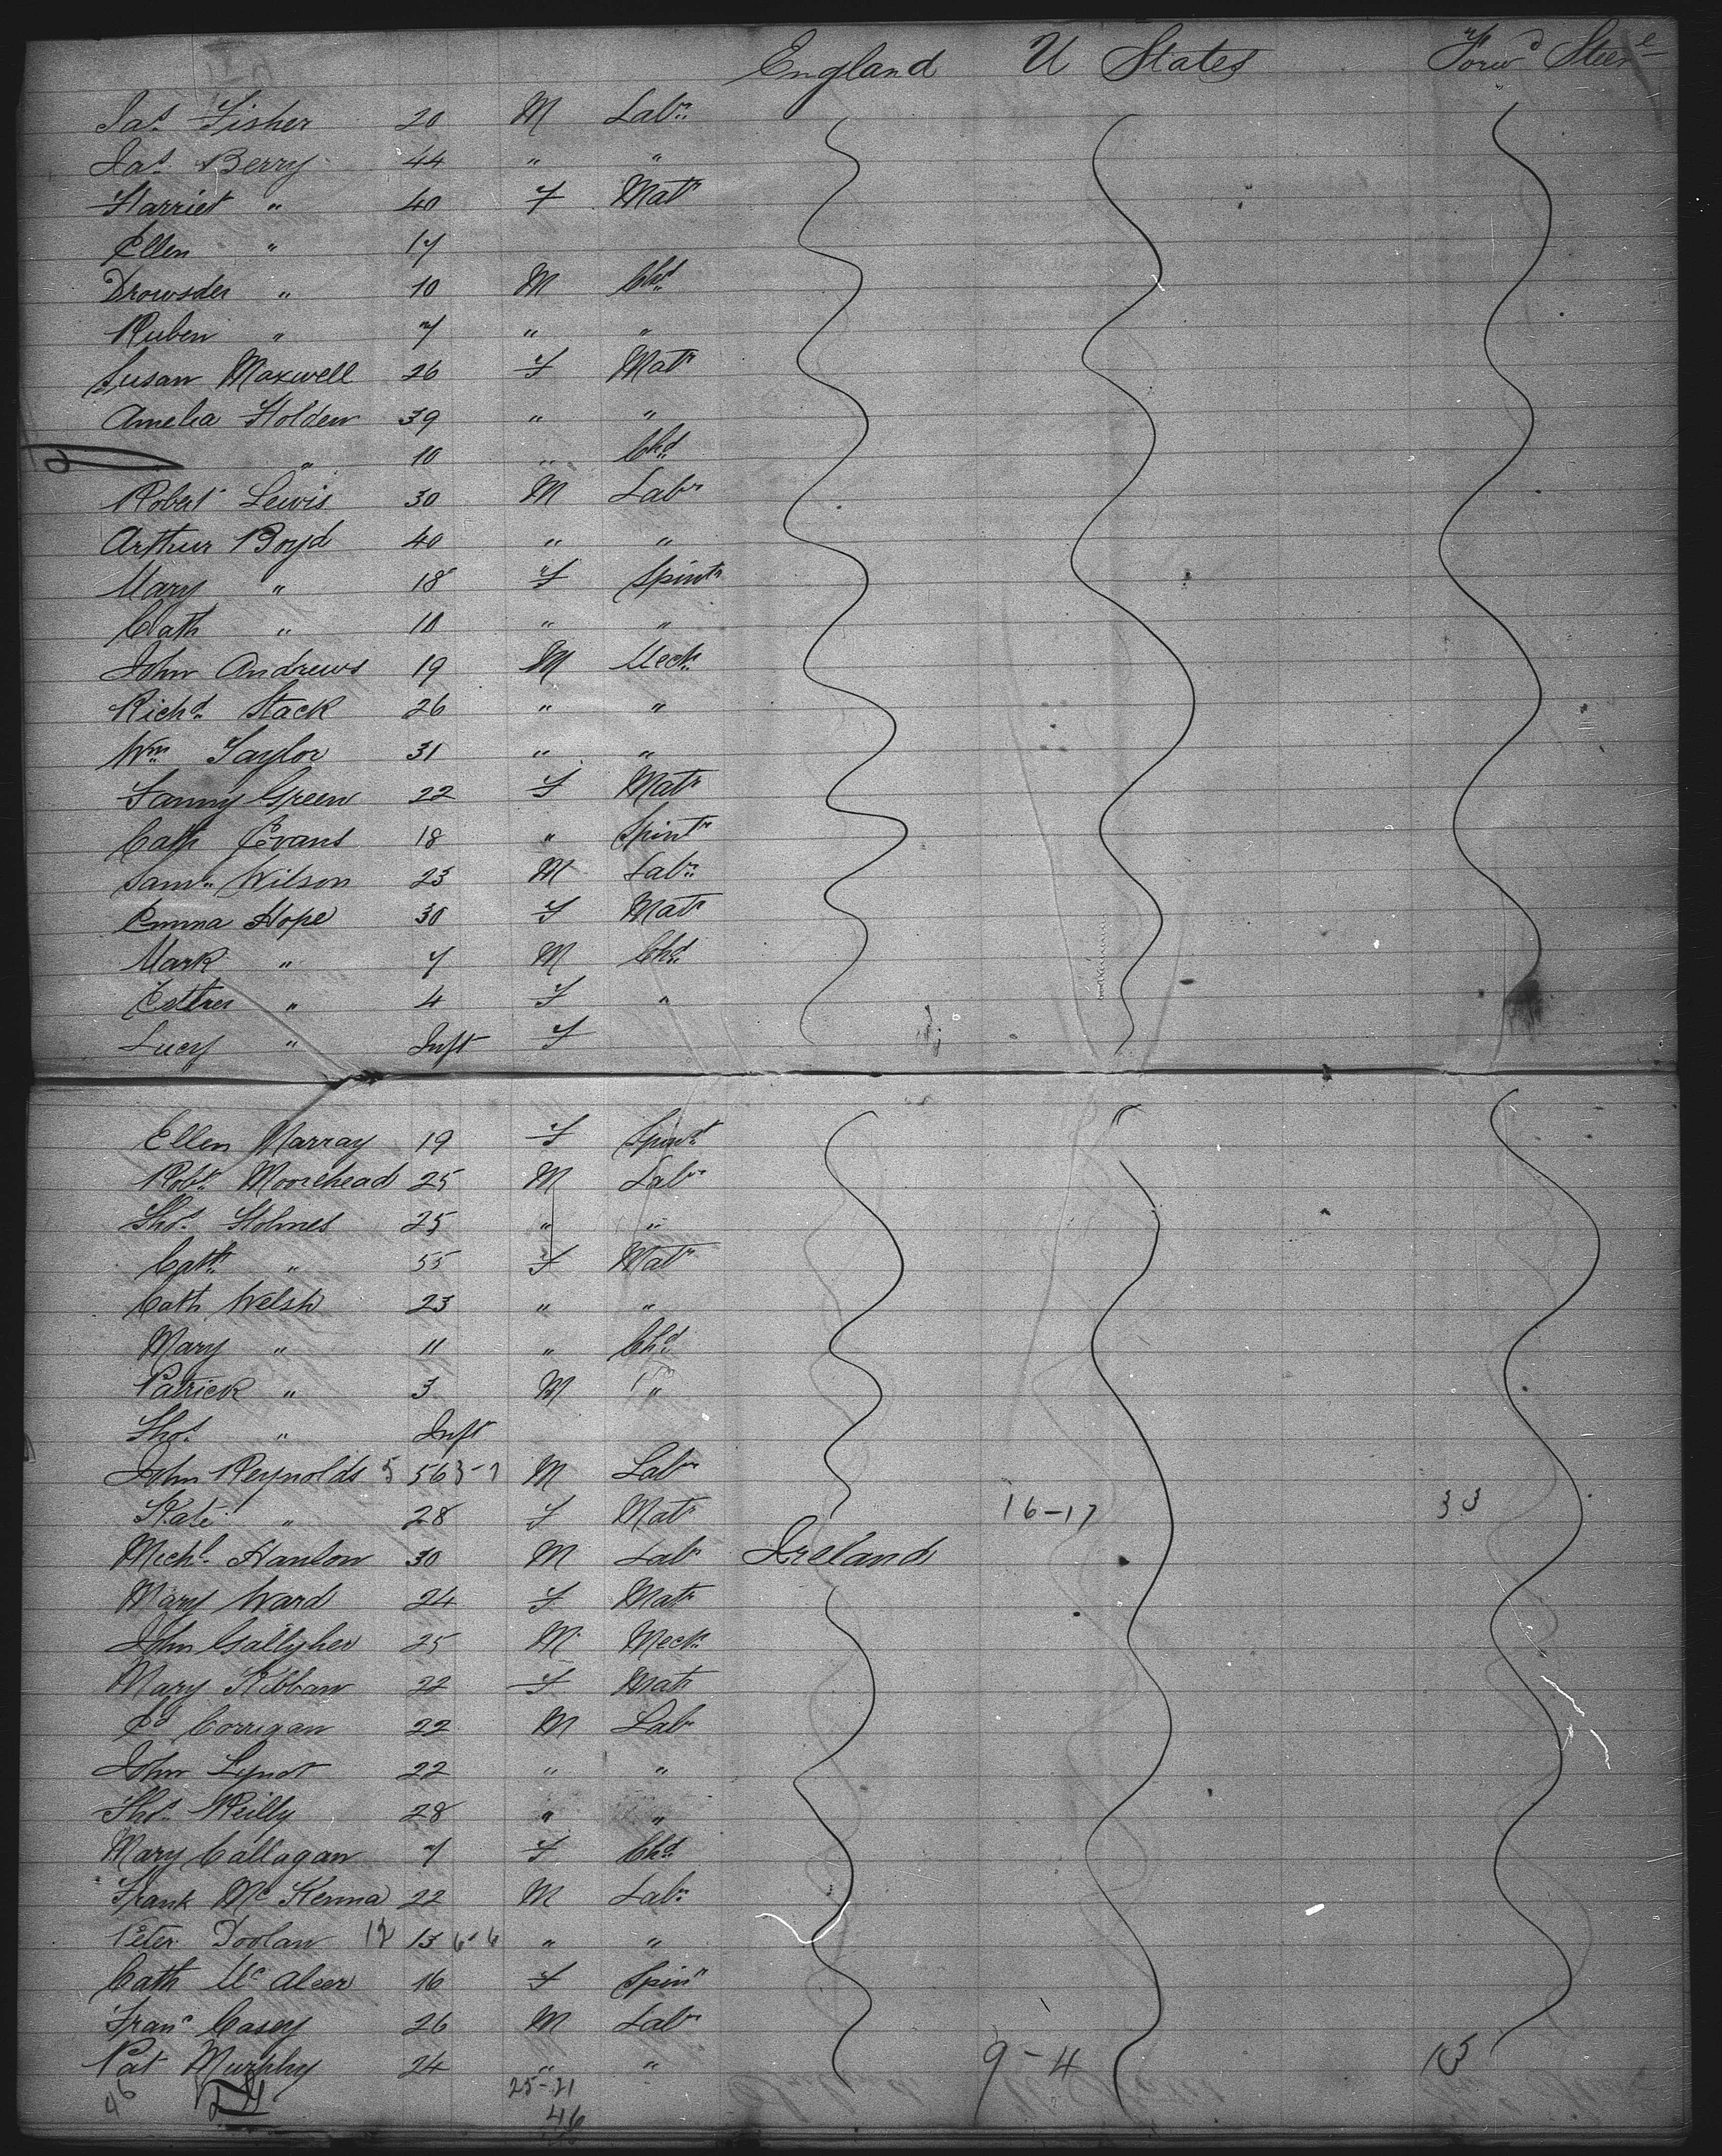 England U States Forwd Steere
Jas. Fisher 20 M Labr.
Jas. Berry 44 " "
Harriet " 40 F Matr
Ellen " 17
Drowsder " 10 M Chd.
Ruben " 7 " "
Susan Maxwell 26 F Matr
Amelia Holden 39 " "
" 10 " Chd.
Robert Lewis 30 M Labr
Arthur Boyd 40 " "
Mary " 18 F Spintr
Cath " 10 " "
John Andrews 19 M Mech.
Richd. Stack 26 " "
Wm. Taylor 31 " "
Fanny Green 22 F Matr
Cath Evans 18 " Spintr
Saml. Wilson 23 M Labr.
Emma Hope 30 F Matr
Mark " 7 M Chd.
Esther " 4 F "
Lucy " Inft F
Ellen Marray 19 F Spint.
Robt. Moorehead 25 M Labr
Thos. Holmes 25 " "
Cath. " 55 F Matr
Cath Welsh 23 " "
Mary " 11 " Chd.
Patrick " 3 M "
Thos. " Inft
John Reynolds 5 56 3-1 M Labr
Kate " 28 F Matr 16-17 33
Michl. Hanlon 30 M Labr Ireland
Mary Ward 24 F Matr
John Gallyher 25 M Mech.
Mary Kibban 22 F Matr
Ed Corrigan 22 M Labr
John Lynot 22 " "
Thos. Reilly 28 " "
Mary Callagan 7 F Chd.
Frank McKenna 22 M Labr.
Peter Doolan 12 13 6-6 " "
Cath McAleer 16 F Spinr
Franc Casey 26 M Labr
Pat Murphy 24 " " 9-4 13
46 25-21
46